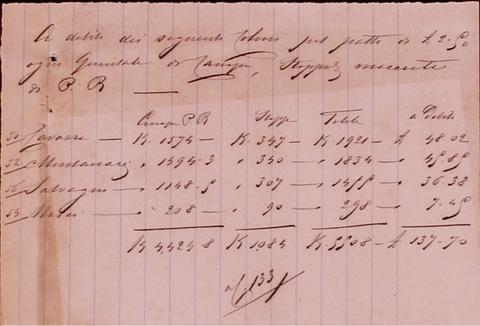 A debito dei seguenti Coloni pel patto di £ 2.50
ogni Quintale di Canapa, Stoppe
di P. R —
Canapa P R Stoppe Totale a Debito
50 — K. 1574 — K. 347 — K 1921 — £ 48.02
52 Montanari „ 1494.3 „ 340 — „ 1834 — „ 45.85
56 Salvagni — „ 1148.5 „ 307 — „ 1455 — „ 36.38
54 — „ 208 — „ 90 — „ 298 — „ 7.45
K 4,424.8 K 1,084 K. 5508 — £ 137.70
133